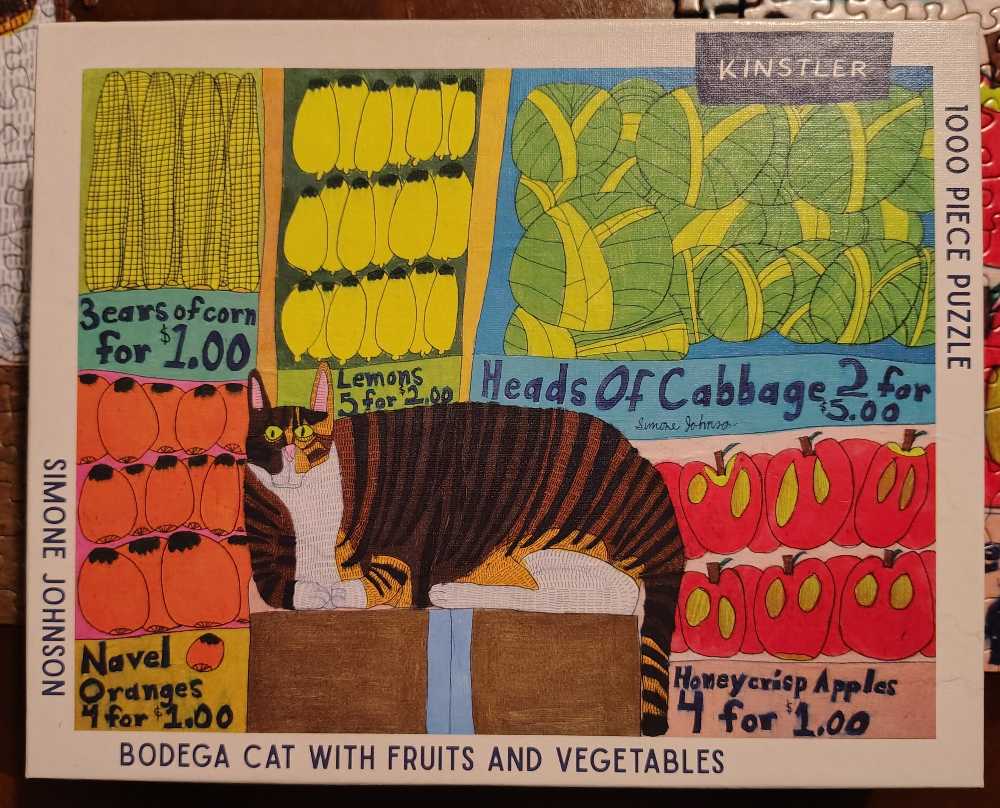 KINSTLER
1000 PIECE PUZZLE
3 ears of corn
for $1.00
Lemons
5 for $2.00
Heads Of Cabbage 2 for
$5.00
Simone Johnson
SIMONE JOHNSON
Navel
Oranges
4 for $1.00
Honeycrisp Apples
4 for $1.00
BODEGA CAT WITH FRUITS AND VEGETABLES